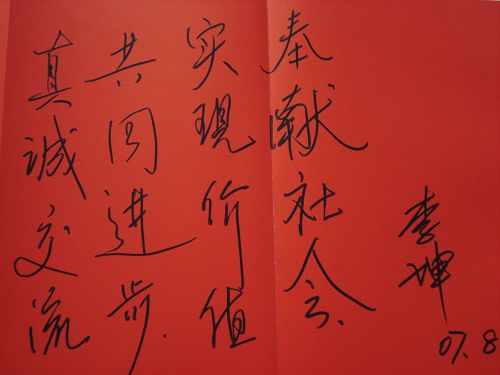 真诚交流
共同进步.
实现价值
奉献社会.
李坤
07.8